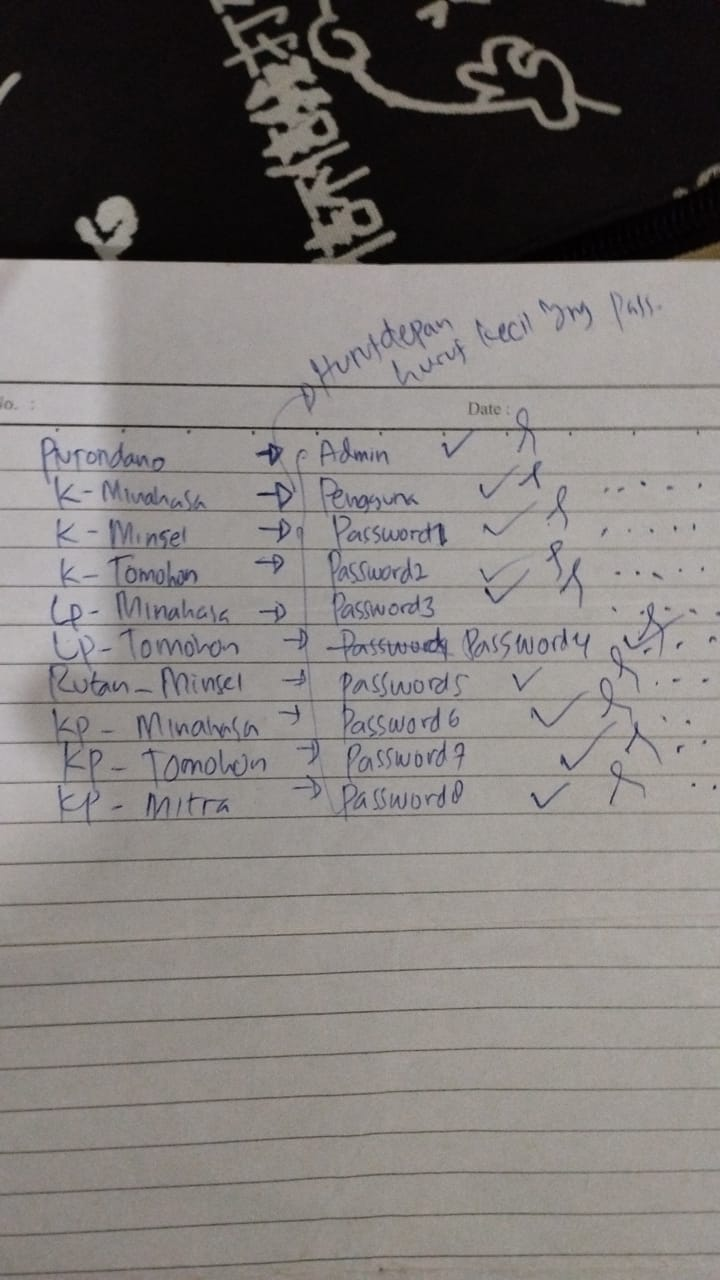 Hurufdepan
huruf kecil yng pass.
No. :
Date :
K - Minahasa → Pengguna ✓
K - Minsel → Password1 ✓
K - Tomohon → Password2 ✓
Lp - Minahasa → Password3 ✓
Lp - Tomohon → Password4 Password4 ✓
Rutan - Minsel → Password5 ✓
KP - Minahasa → Password6 ✓
KP - Tomohon → Password7 ✓
KP - Mitra → Password8 ✓
→ Admin ✓